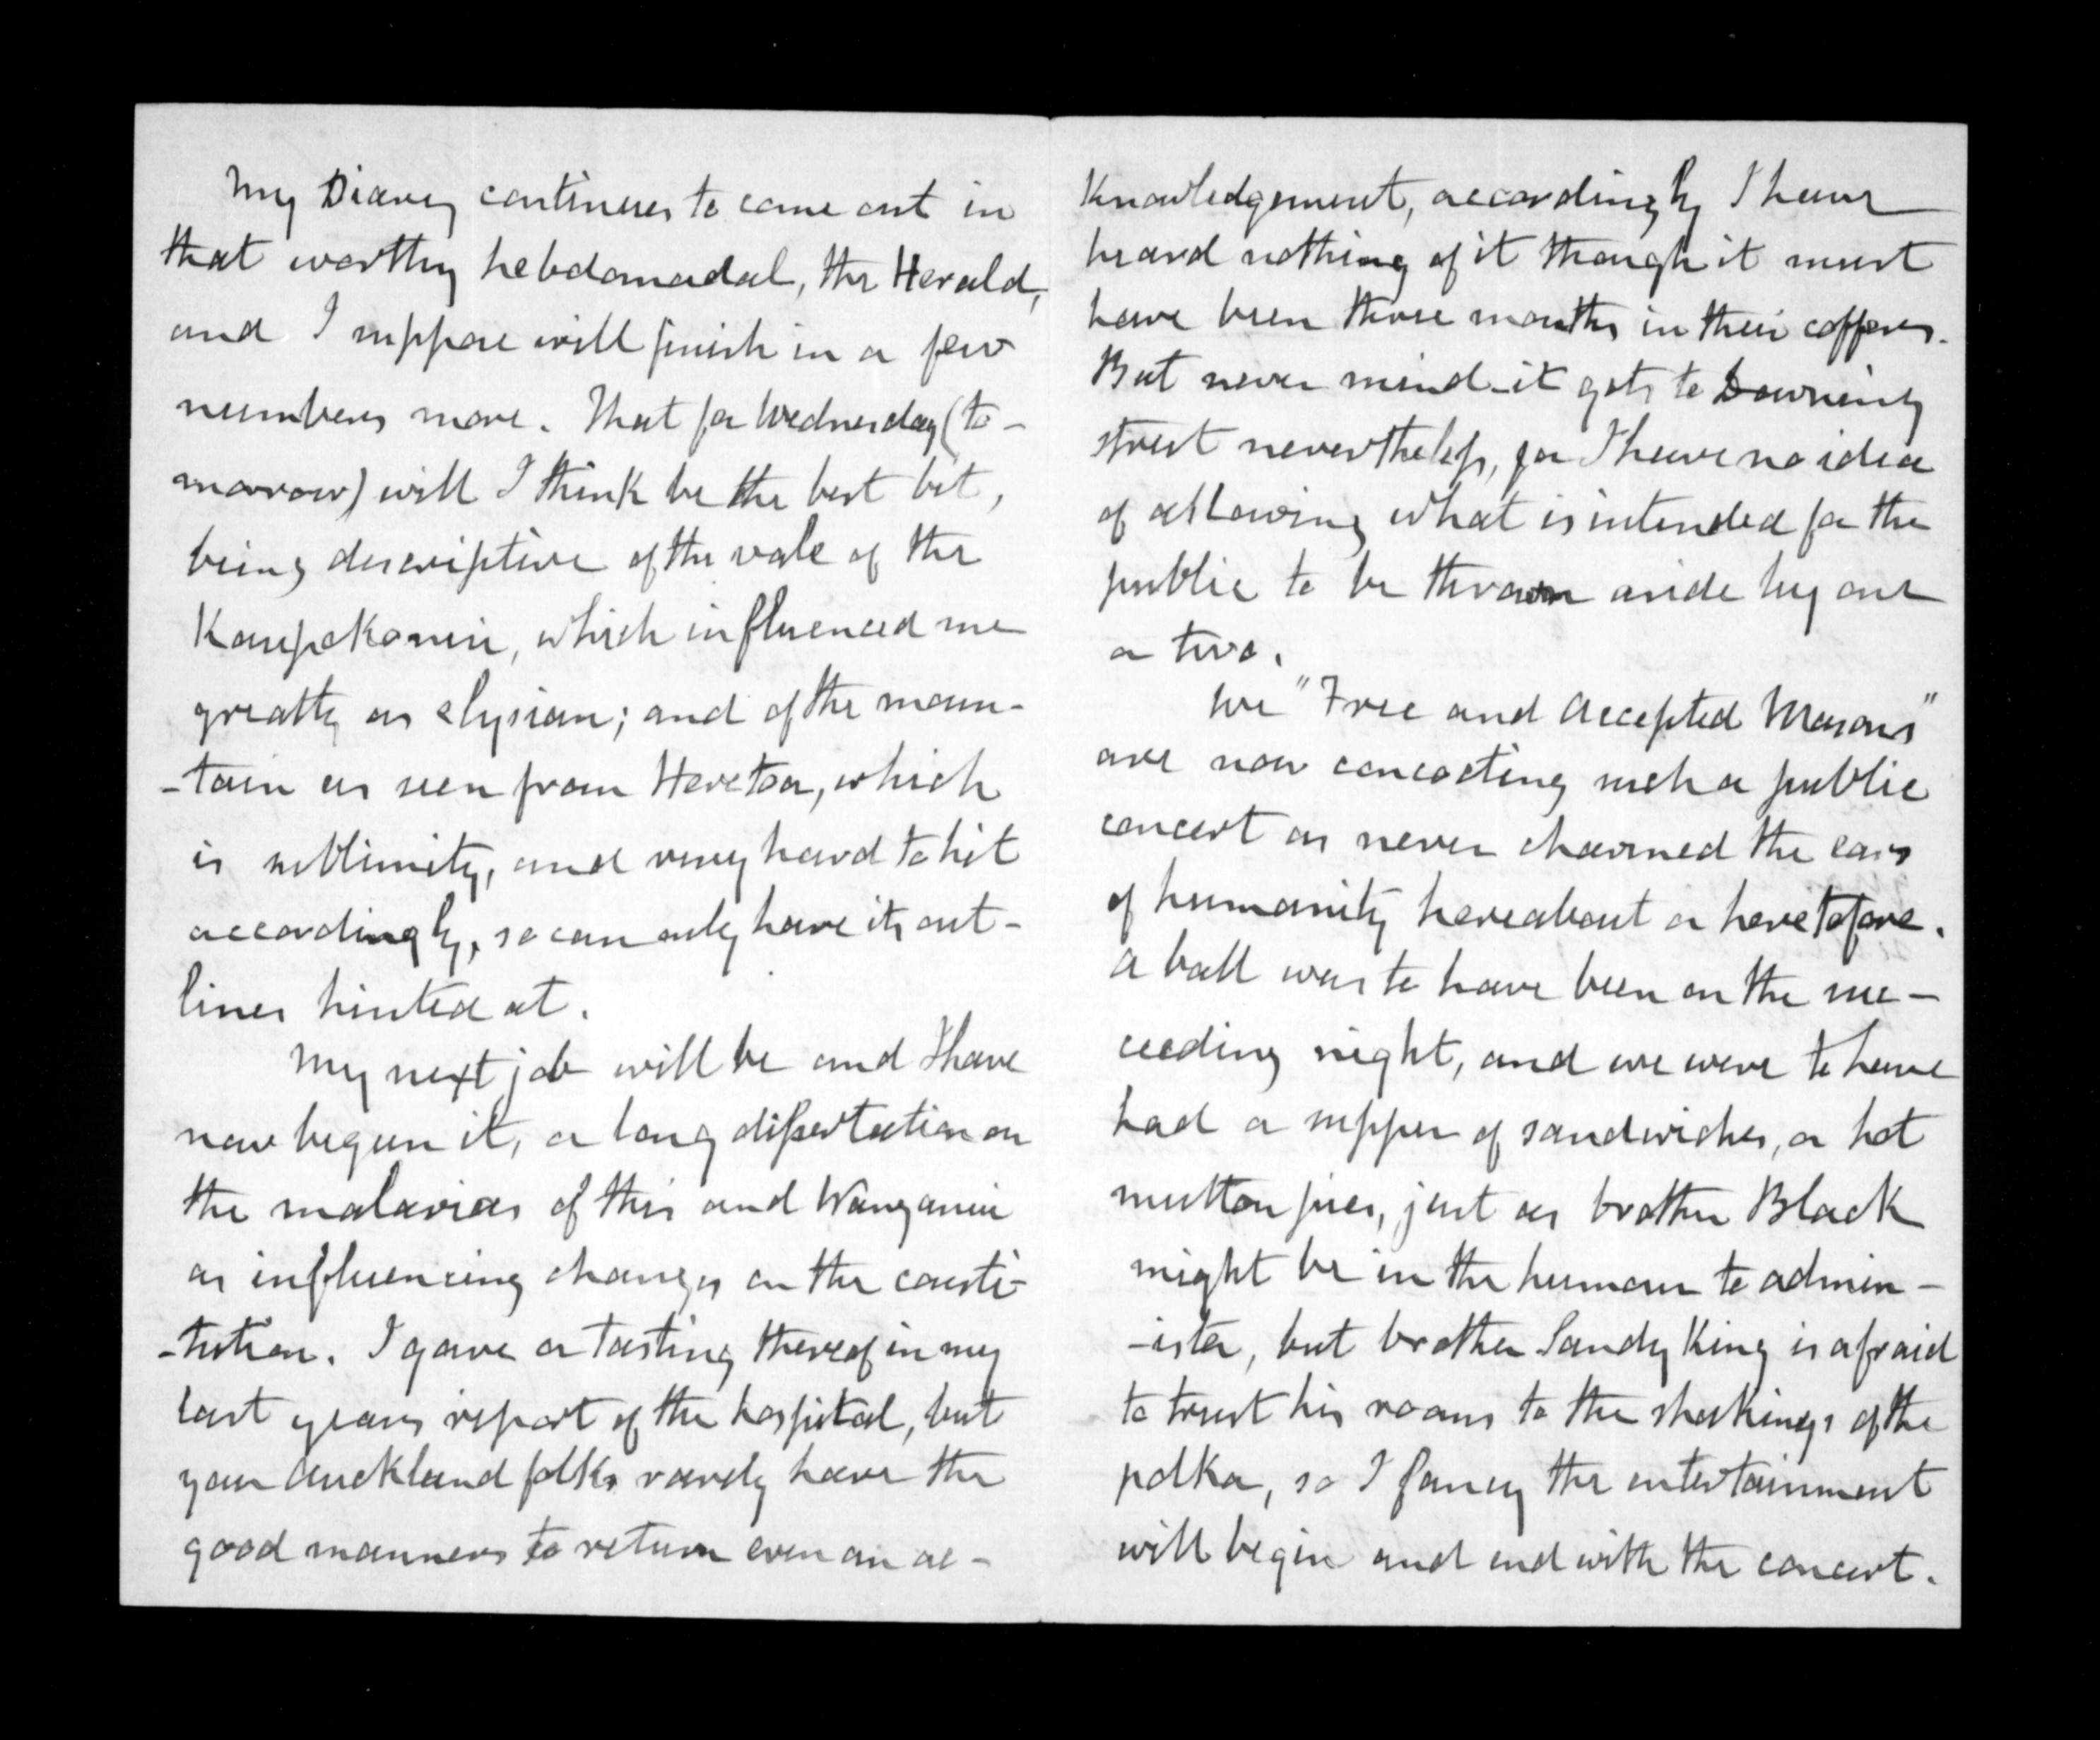 My Diary continues to come out in
that worthy hebdomadal, the Herald,
and I suppose will finish in a few
numbers more. That for Wednesday (to-
morrow) will I think be the best bit,
being descriptive of the vale of the
Kaupokonui, which influenced me
greatly as elysian; and of the moun-
-tain as seen from Heretoa, which
is sublimity, and very hard to hit
accordingly, so can only have its out-
lines hinted at.
My next job will be and I have
now begun it, a long dissertation on
the malarias of this and Wanganui
as influencing changes on the consti-
-tution. I gave a tasting thereof in my
last years report of the hospital, but
your Auckland folks rarely have the
good manners to return even an ac-
knowledgement, accordingly I have
heard nothing of it though it must
have been three months in their coffers.
But never mind - it gets to Downing
street nevertheless, for I have no idea
of allowing what is intended for the
public to be thrown aside by one
or two.
We "Free and Accepted Masons"
are now concocting such a public
concert as never charmed the ears
of humanity hereabout or heretofore.
A ball was to have been on the suc-
ceeding night, and we were to have
had a supper of sandwiches, or hot
mutton pies, just as brother Black
might be in the humour to admin-
-ister, but brother Sandy King is afraid
to trust his rooms to the shakings of the
polka, so I fancy the entertainment
will begin and end with the concert.